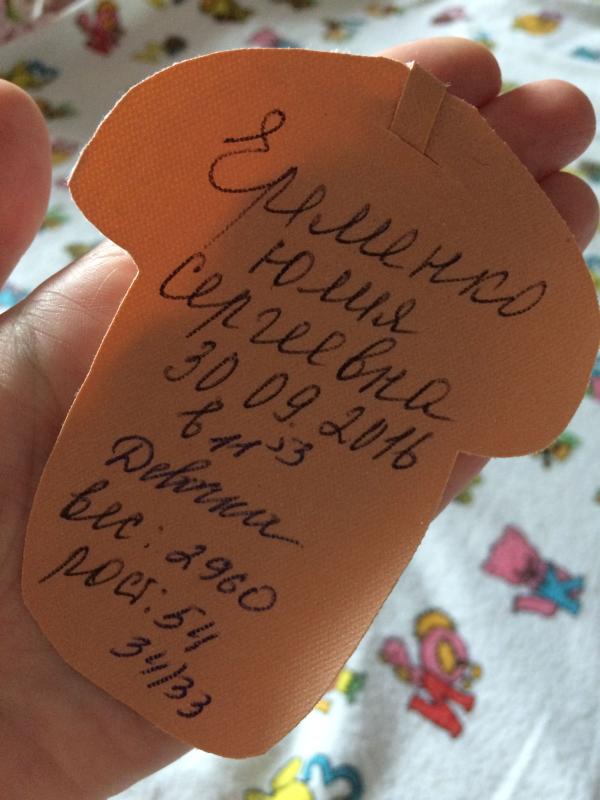 Еременко
Юлия
Сергеевна
30 09.2016
в 11 53
Девочка
вес: 2960
рост: 54
34/33